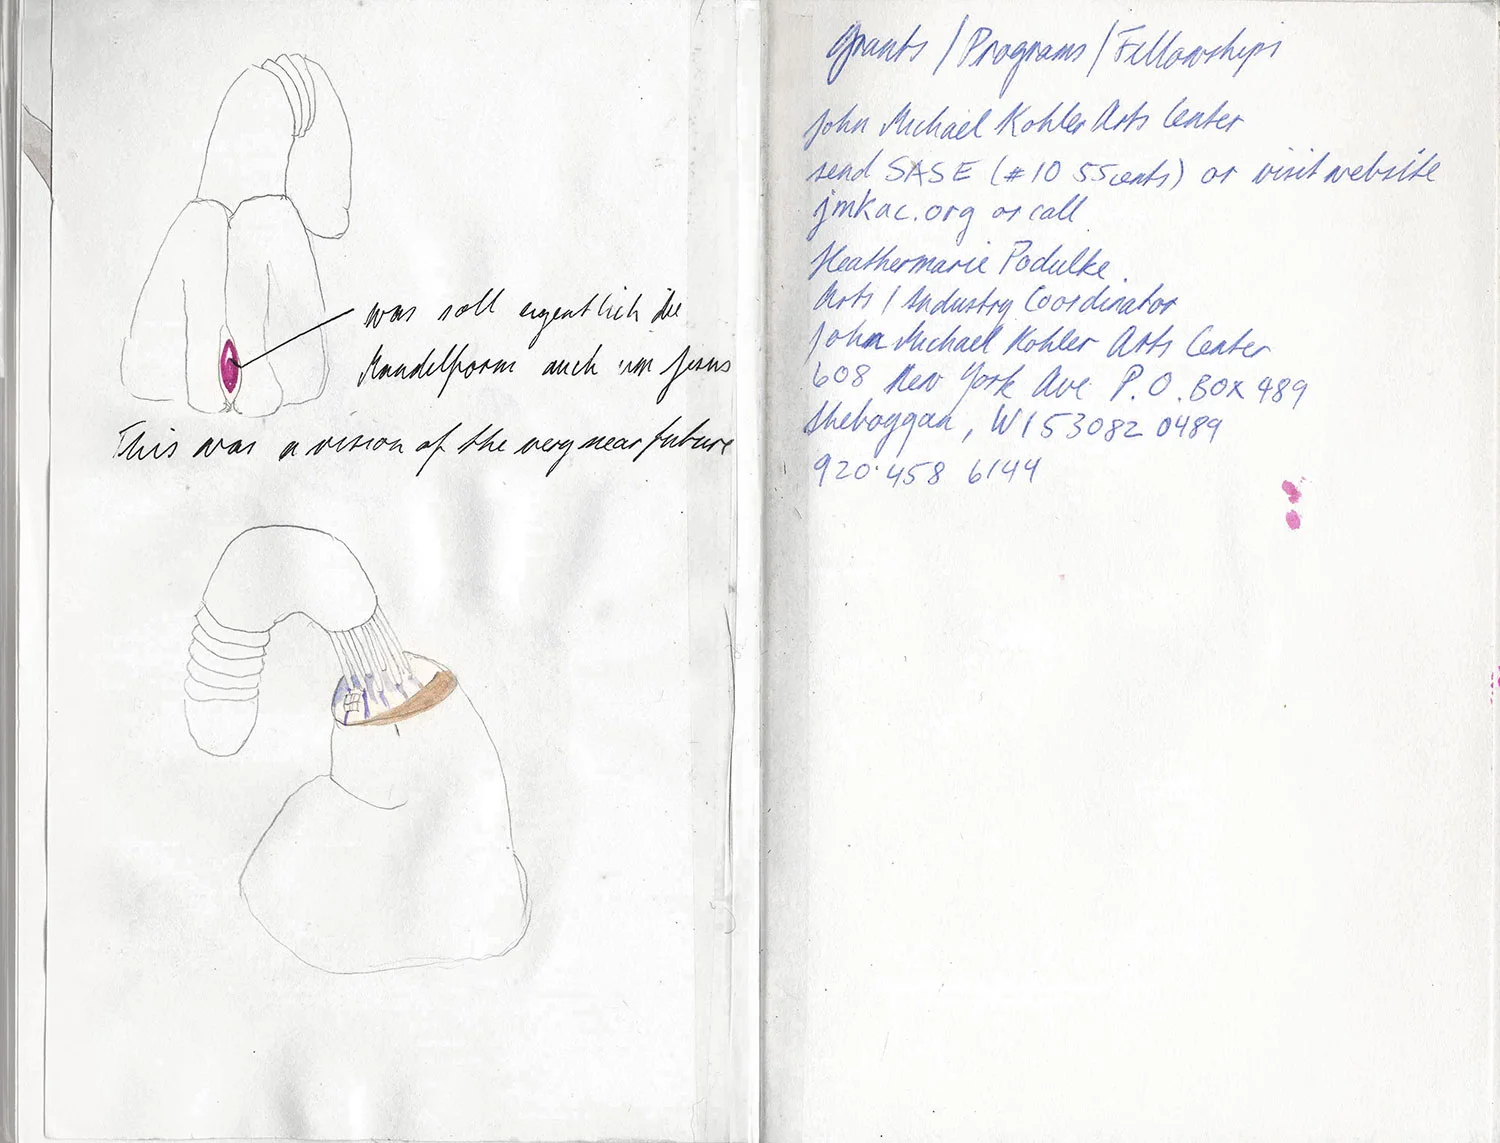 was soll eigentlich die
Mandelform auch um Jesus
This was a vision of the very near future
Grants / Programs / Fellowships
John Michael Kohler Arts Center
send SASE (#10 55cents) or visit website
jmkac.org or call
Heathermarie Podulke
Arts / Industry Coordinator
John Michael Kohler Arts Center
608 New York Ave P.O. BOX 489
Sheboygan, WI 53082 0489
920.458 6144